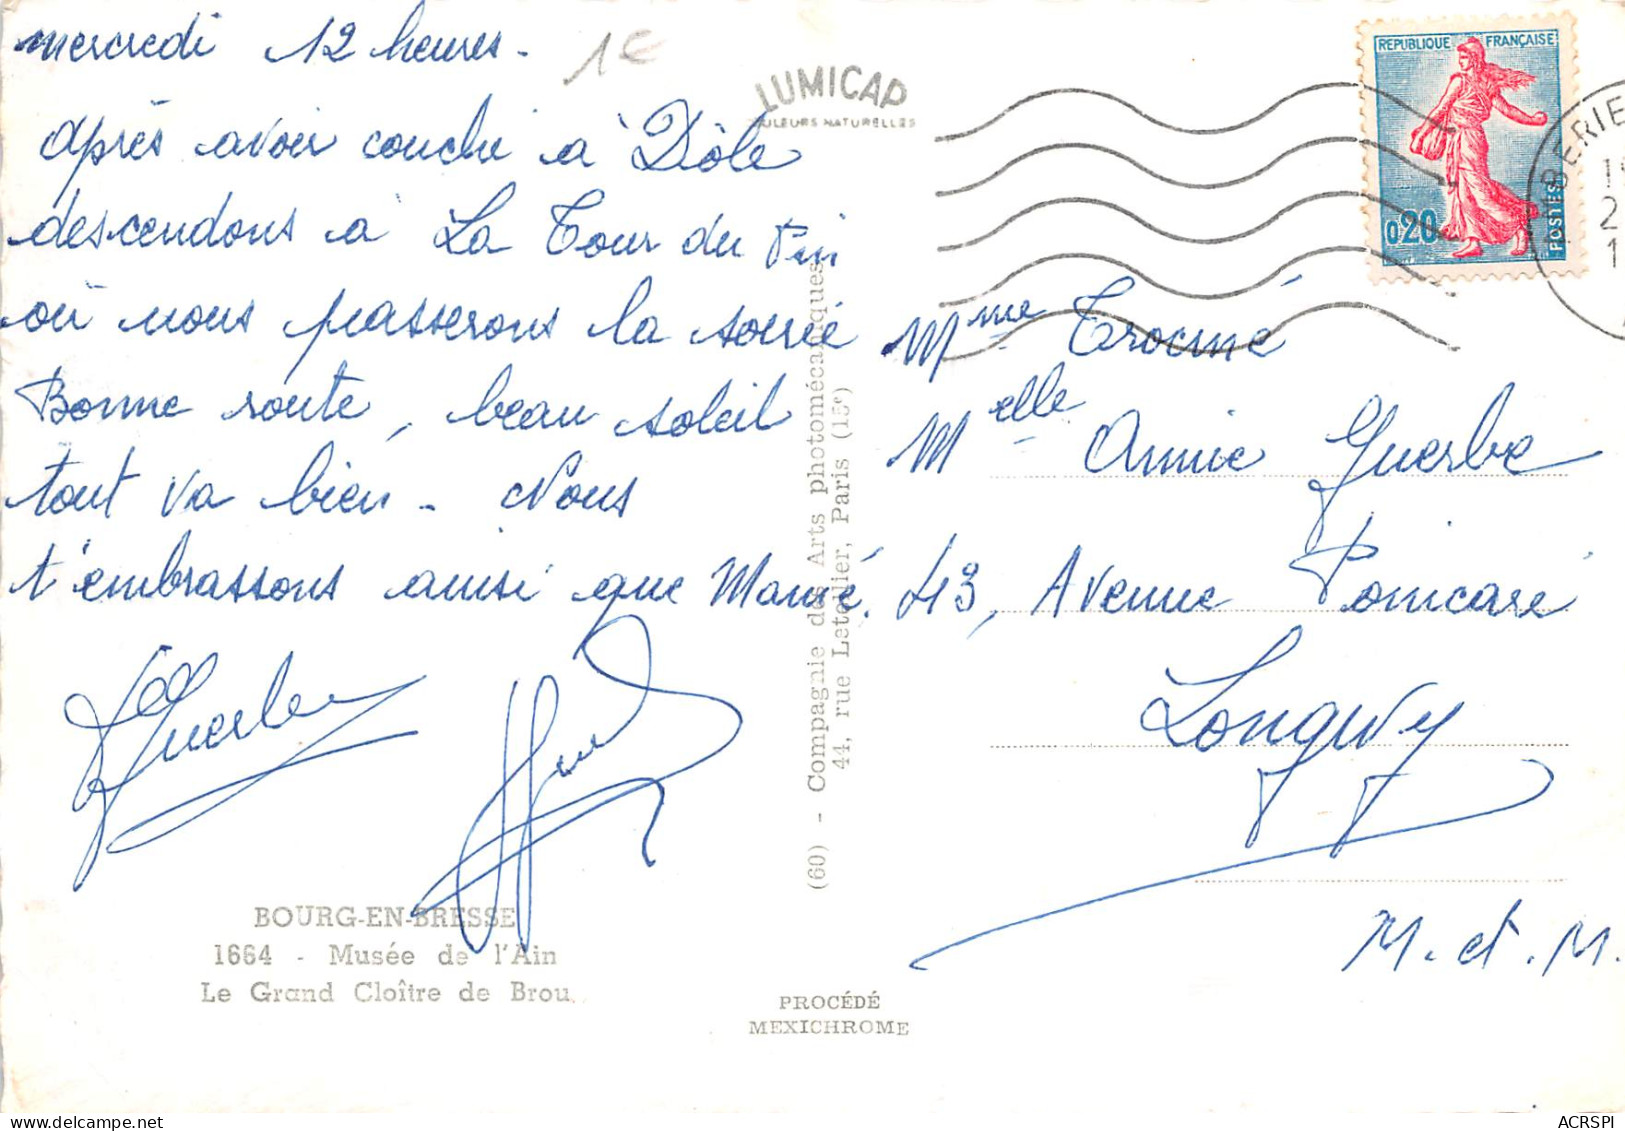 mercredi 12 heures.
1€
après avoir couché à Dôle
descendons à La Tour du Pin
où nous passerons la soirée
Bonne route, beau soleil
tout va bien - Nous
t'embrassons ainsi que Mamé.
BOURG-EN-BRESSE
1664 - Musée de l'Ain
Le Grand Cloître de Brou
LUMICAP
COULEURS NATURELLES
(60) - Compagnie des Arts photomécaniques
44, rue Letellier, Paris (15e)
PROCÉDÉ
MEXICHROME
REPUBLIQUE FRANÇAISE
0,20
POSTES
Mme Trocmé
Melle Annie Guerbe
43, Avenue Poincaré
Longwy
M. et M.
ACRSPI